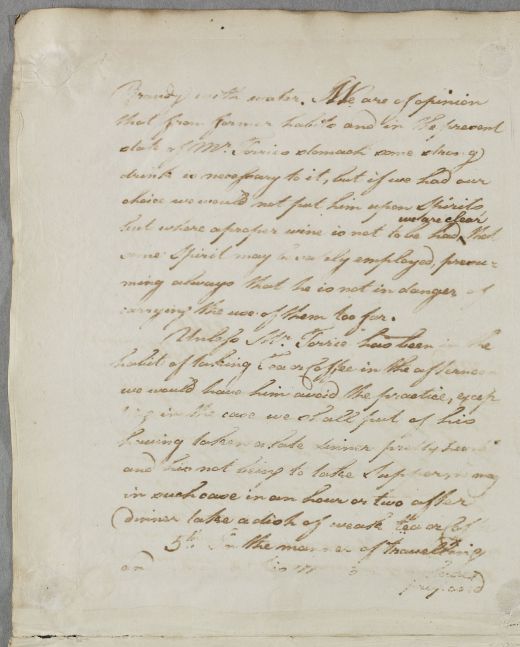 Brandy with water. We are of opinion
that from former habits and in the present
state of Mr. Torries stomach some strong
drink is necessary to it, but if we had our
choice we would not put him upon Spirits
we are clear
but where a proper wine is not to be had, that
some Spirit may be safely employed, presu=
ming always that he is not in danger of
carrying the use of them too far.
Unless Mr. Torrie has been in the
habit of taking Tea or Coffee in the afternoon
we would have him avoid the practice, excep
ting in the case we shall put of his
having taken a late dinner pretty
and his not being to take Supper, may
in such case in an hour or two after
Dinner take a dish of weak tea or Cof
5th In the manner of travelling
and
prepared